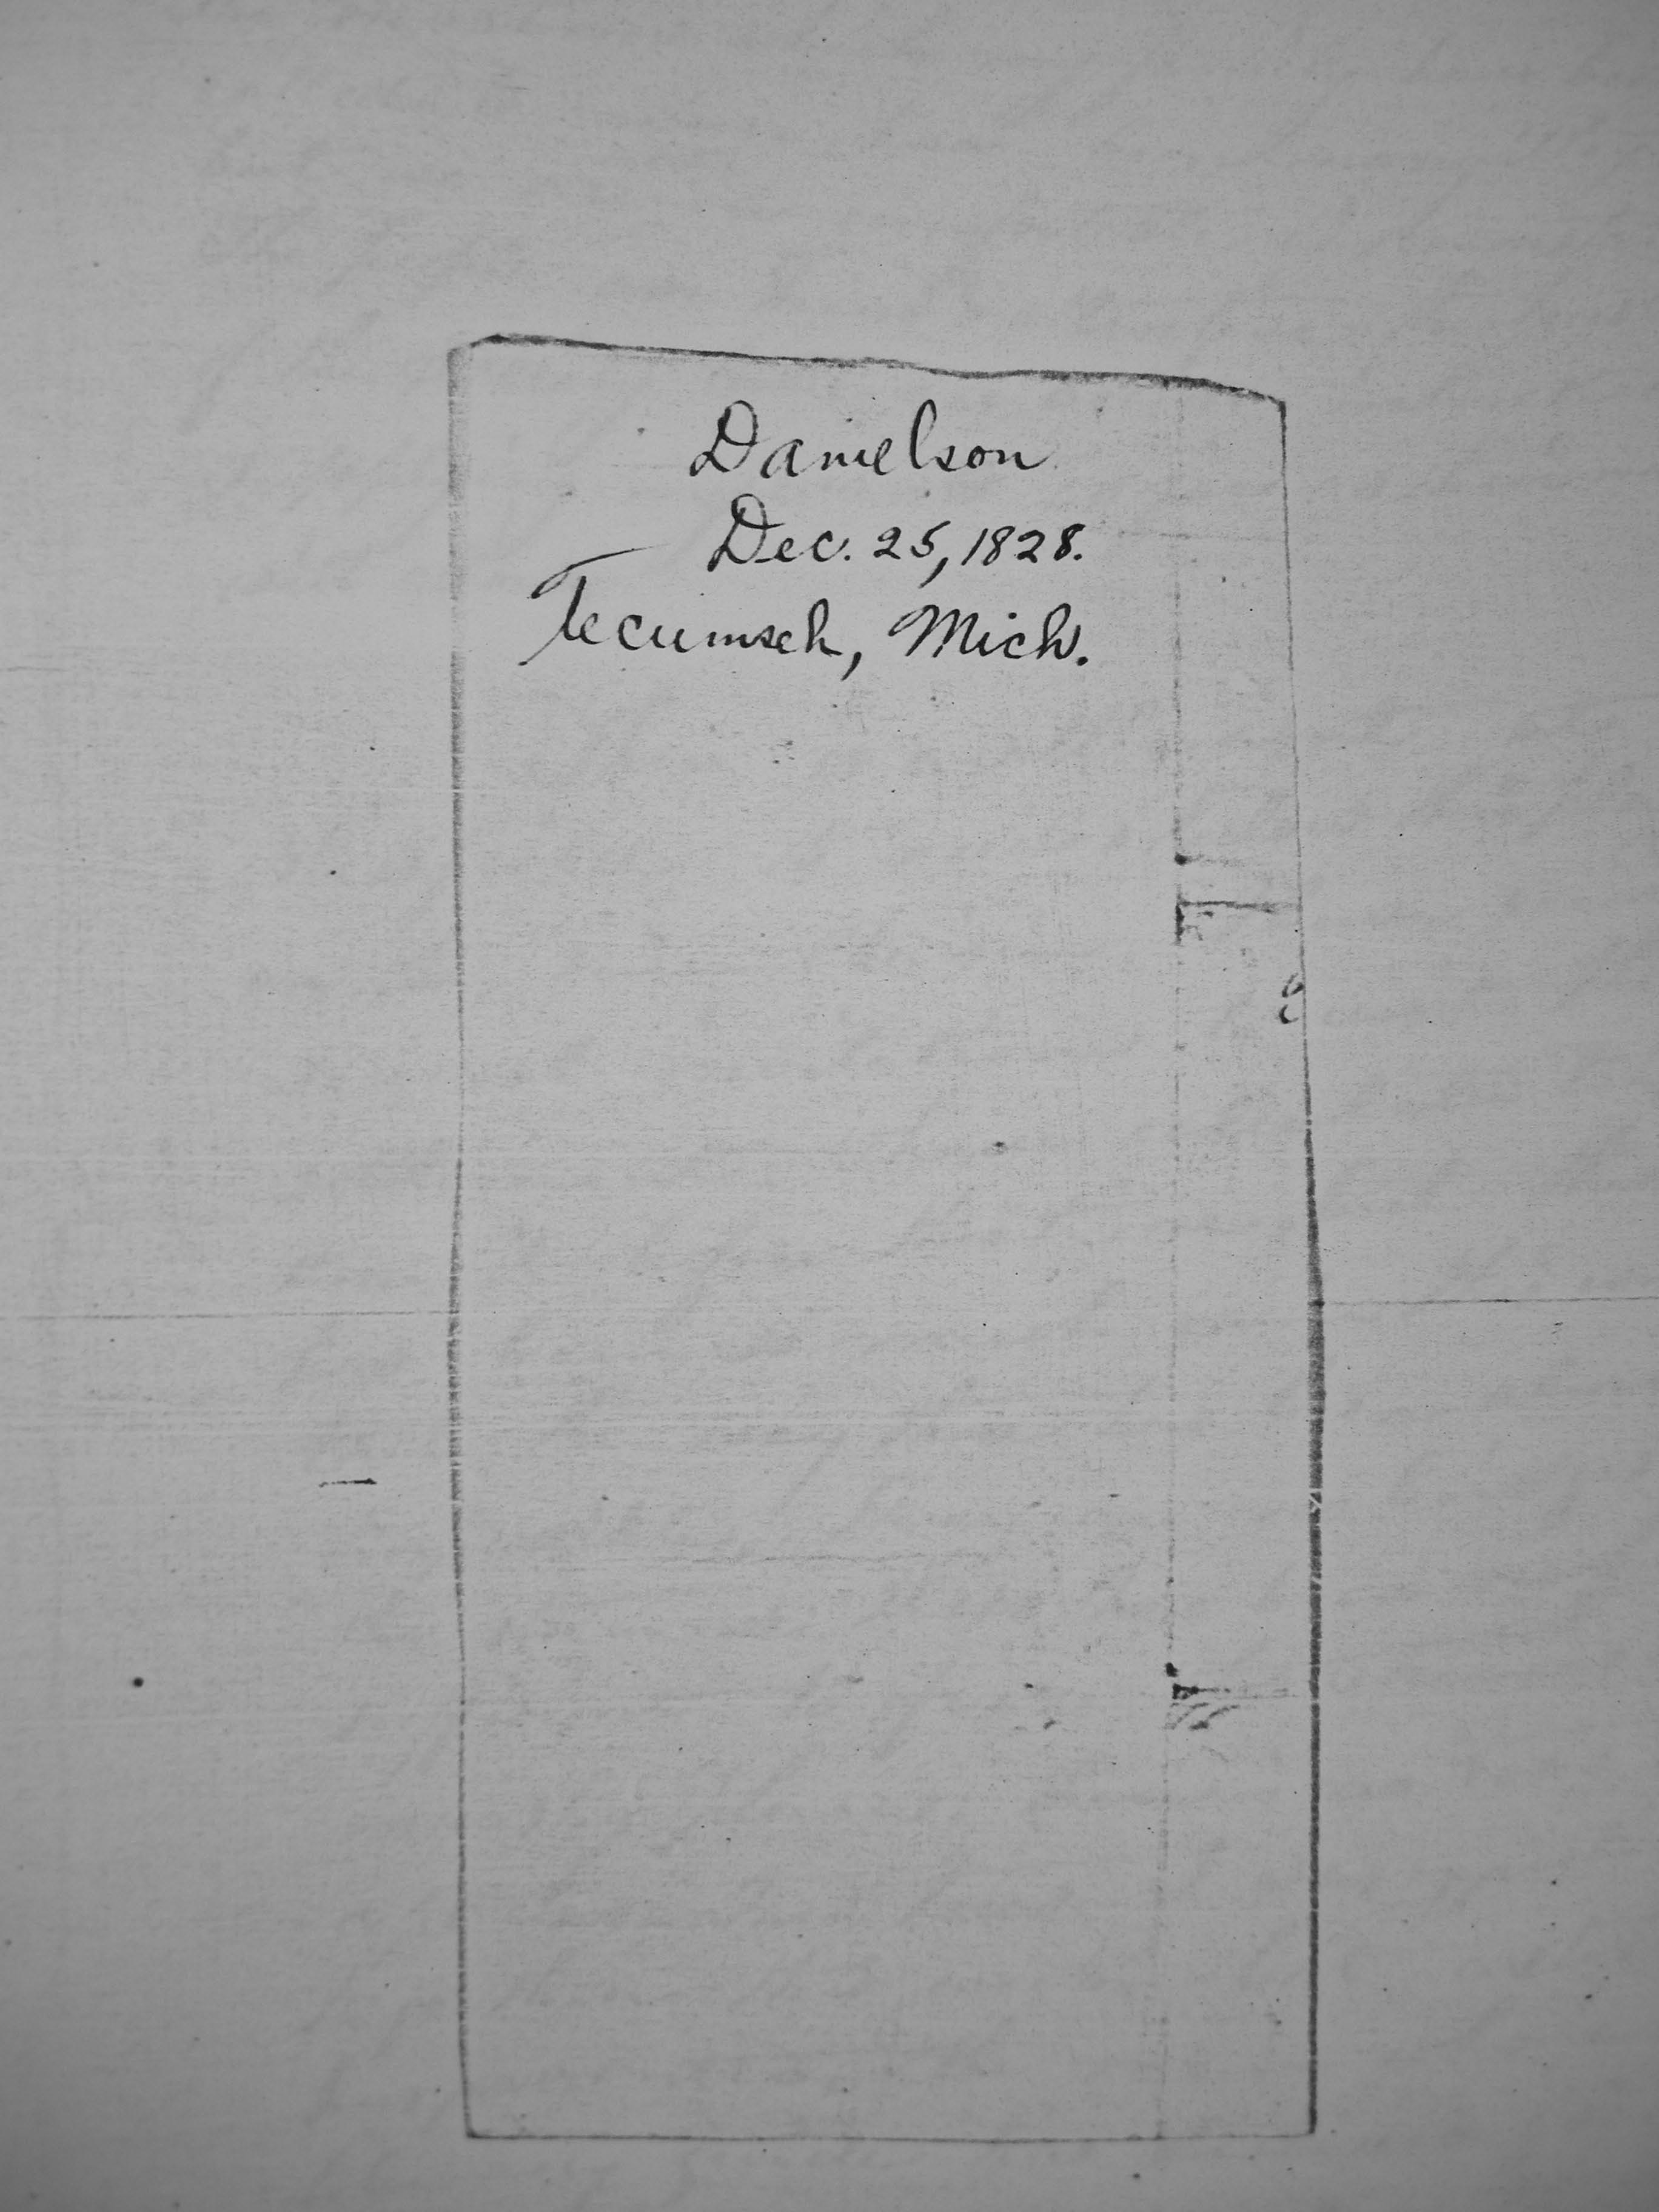 Danielson
Dec. 25, 1828.
Tecumseh, Mich.